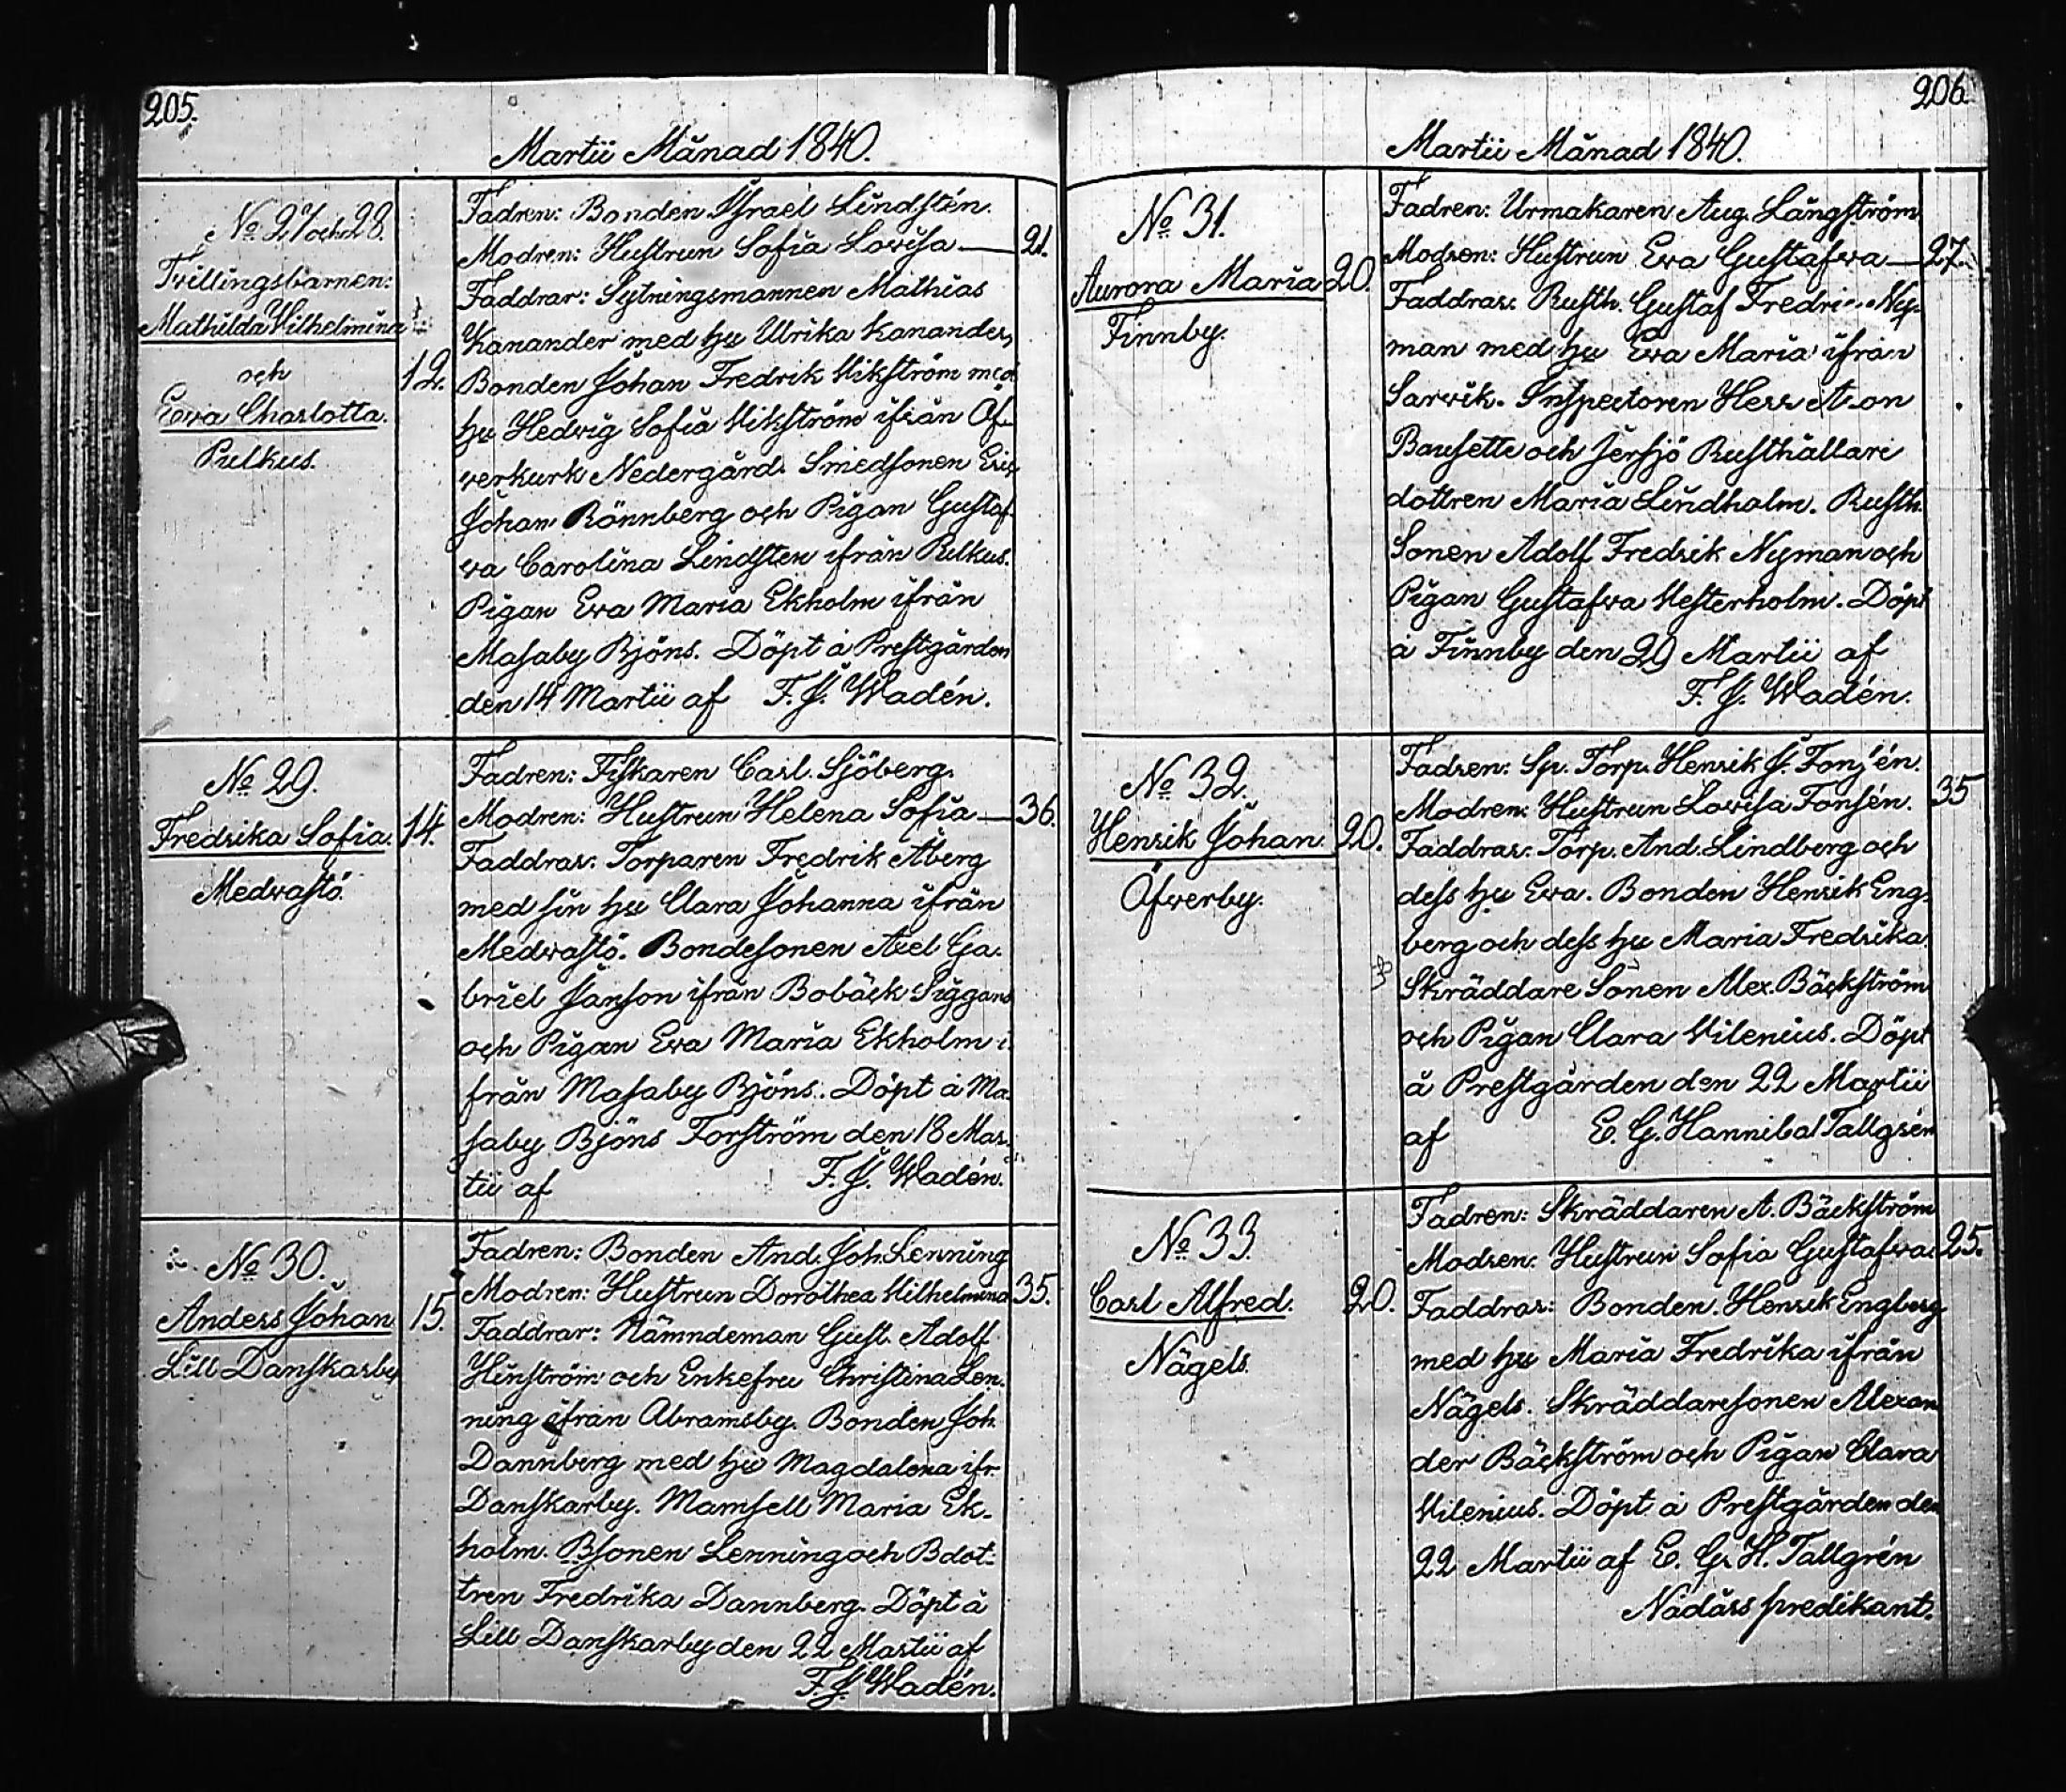 205.
Martii Månad 1840.
No 27 och 28.
Tvillingsbarnen:
Mathilda Wilhelmina
och
Ewa Charlotta.
Pulkus.
12.
Fadren: Bonden Israel Lindstén.
Modren: Hustrun Sofia Lovisa — 21.
Faddrar: Sytningsmannen Mathias
Kanander med hu Ulrika Kanander,
Bonden Johan Fredrik Wikström med
hu Hedvig Sofia Wikström ifrån Öf-
verkurk Nedergård. Smedsonen Eric
Johan Rönnberg och Pigan Gustaf-
va Carolina Lindsten ifrån Pulkus.
Pigan Ewa Maria Ekholm ifrån
Masaby Bjöns. Döpt å Prestgården
den 14 Martii af F. J. Wadén.
No 29.
Fredrika Sofia.
Medvastö.
14.
Fadren: Fiskaren Carl Sjöberg.
Modren: Hustrun Helena Sofia — 36.
Faddrar: Torparen Fredrik Åberg
med sin hu Clara Johanna ifrån
Medvastö. Bondesonen Axel Ga-
briel Janson ifrån Bobäck Siggans
och Pigan Ewa Maria Ekholm i-
från Masaby Bjöns. Döpt å Ma-
saby Bjöns Forström den 18 Mar-
tii af F. J. Wadén.
No 30.
Anders Johan
Lill Danskarby
15.
Fadren: Bonden And. Joh. Lenning
Modren: Hustrun Dorothea Wilhelmina 35.
Faddrar: Nämndeman Gust. Adolf
Hinström och Enkefru Christina Len-
ning ifrån Abramsby. Bonden Joh.
Dannberg med hu Magdalena ifr.
Danskarby. Mamsell Maria Ek-
holm. Bsonen Lenning och Bdot-
tren Fredrika Dannberg. Döpt å
Lill Danskarby den 22 Martii af
F. J. Wadén.
206.
Martii Månad 1840.
No 31.
Aurora Maria
Finnby.
20.
Fadren: Urmakaren Aug. Långström
Modren: Hustrun Ewa Gustafva — 27.
Faddrar: Rusth. Gustaf Fredric Ny-
man med hu Ewa Maria ifrån
Sarvik. Inspectoren Herr
och Jersjö Rusthållare
dottren Maria Lindholm. Rusth.
Sonen Adolf Fredrik Nyman och
Pigan Gustafva Westerholm. Döpt
å Finnby den 29 Martii af
F. J. Wadén.
No 32.
Henrik Johan.
Öfverby.
20.
Fadren: Sp. Torp. Henrik J. Fonsén.
Modren: Hustrun Lovisa Fonsén. 35
Faddrar: Torp. And. Lindberg och
dess hu Ewa. Bonden Henrik Eng-
berg och dess hu Maria Fredrika.
Skräddare Sonen Alex. Bäckström
och Pigan Clara Wilenius. Döpt
å Prestgården den 22 Martii
af E. G. Hannibal Tallgrén
No 33.
Carl Alfred.
Nägels.
20.
Fadren: Skräddaren A. Bäckström
Modren: Hustrun Sofia Gustafva. 25.
Faddrar: Bonden. Henrik Engberg
med hu Maria Fredrika ifrån
Nägels. Skräddaresonen Alexan
der Bäckström och Pigan Clara
Wilenius. Döpt å Prestgården den
22 Martii af E. G. H. Tallgrén
Nådårs predikant.